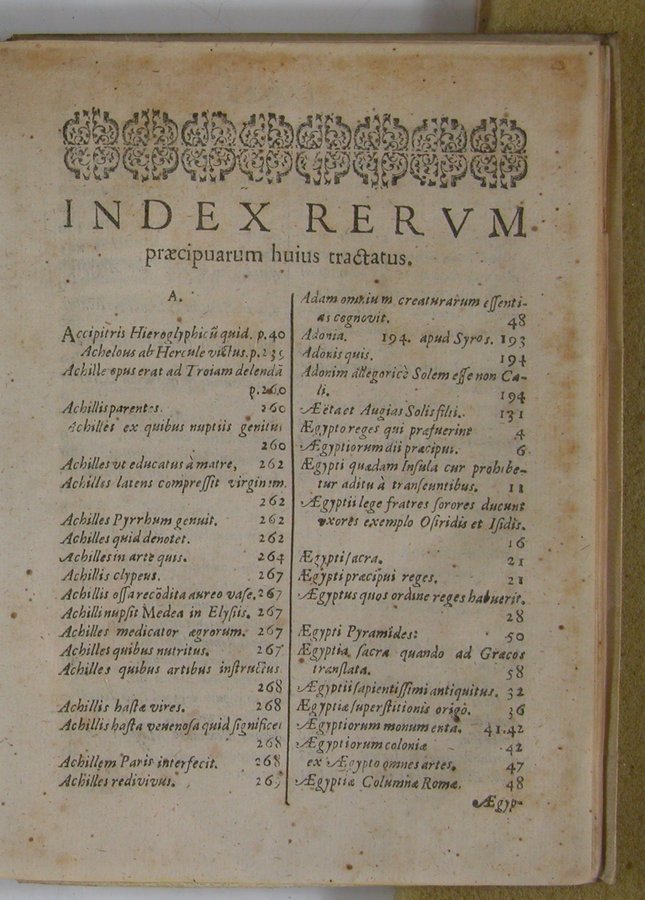 INDEX RERVM
præcipuarum huius tractatus.
A.
Accipitris Hieroglyphicũ quid. p.40
Achelous ab Hercule victus. p.235
Achille opus erat ad Troiam delendã
p.260
Achillis parentes. 260
Achilles ex quibus nuptiis genitus
260
Achilles vt educatus à matre, 262
Achilles latens compreſſit virginem.
262
Achilles Pyrrhum genuit. 262
Achilles quid denotet. 262
Achilles in arte quis. 264
Achillis clypeus. 267
Achillis oſſa recõdita aureo vaſe. 267
Achilli nupſit Medea in Elyſiis. 267
Achilles medicator ægrorum. 267
Achilles quibus nutritus. 267
Achilles quibus artibus inſtructus
268
Achillis haſtæ vires. 268
Achillis haſta venenoſa quid ſignificet
268
Achillem Paris interfecit. 268
Achilles redivivus. 269
Adam omnium creaturarum eſſenti-
as cognovit. 48
Adonia. 194. apud Syros. 193
Adonis quis. 194
Adonim allegoricè Solem eſſe non Cæ-
li. 194
Æëta et Augias Solis filii. 131
Ægypto reges qui præfuerint 4
Ægyptiorum dii præcipui. 6
Ægypti quædam Inſula cur prohibe-
tur aditu à tranſeuntibus. 11
Ægyptii lege fratres ſorores ducunt
vxores exemplo Oſiridis et Iſidis.
16
Ægypti ſacra. 21
Ægypti præcipui reges. 21
Ægyptus quos ordine reges habuerit.
28
Ægypti Pyramides: 50
Ægyptia ſacra quando ad Græcos
tranſlata. 58
Ægyptii ſapientiſſimi antiquitus. 32
Ægyptiæ ſuperſtitionis origo. 36
Ægyptiorum monumenta. 41.42
Ægyptiorum coloniæ 42
ex Ægypto omnes artes. 47
Ægyptiæ Columnæ Romæ. 48
Ægyp-